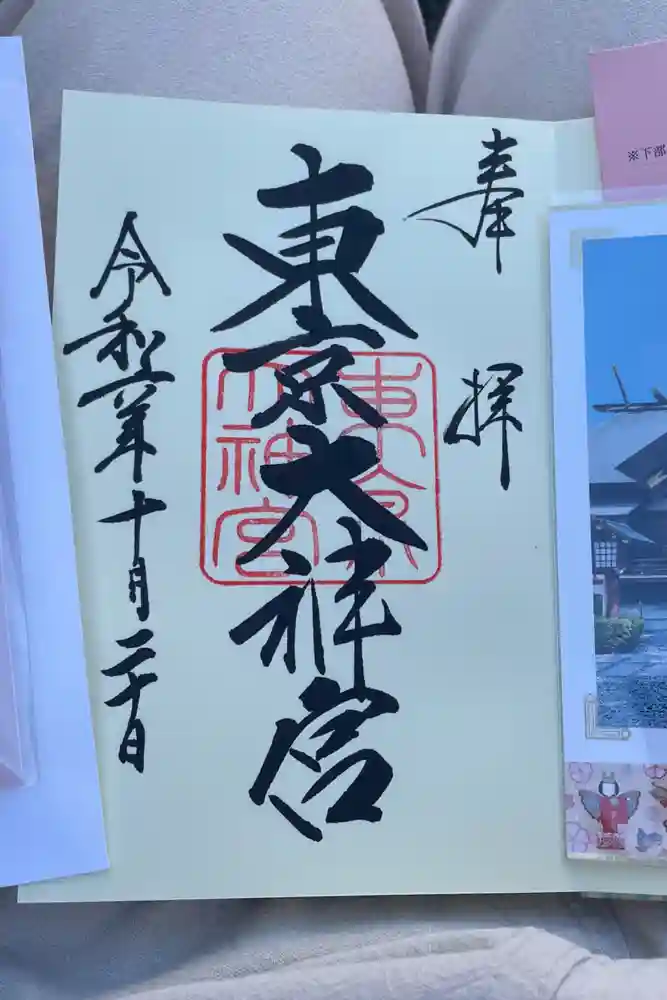 ※下部
奉拝
東京大神宮
東京大神宮
令和六年十月二十日